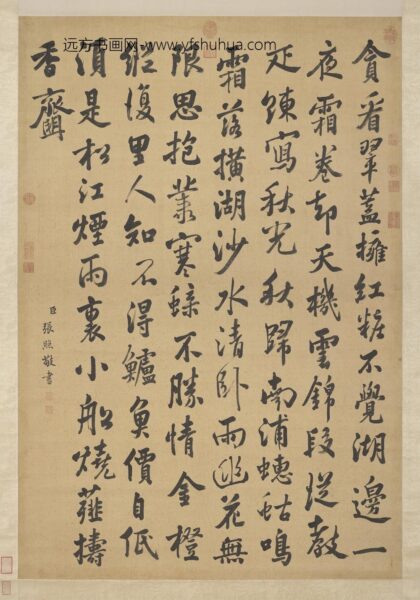 远方书画网-www.yfshuhua.com
貪看翠蓋擁紅粧不覺湖邊一
夜霜卷却天機雲錦段從教
疋練寫秋光秋歸南浦蟪蛄鳴
霜落橫湖沙水清卧雨幽花無
限思抱叢寒蝶不勝情金橙
縱復里人知不得鱸魚價自低
須是松江煙雨裏小船燒薤擣
香齏
臣張照敬書